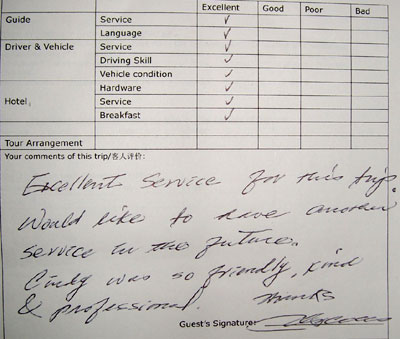 Excellent Good Poor Bad
Guide Service ✓
Language ✓
Driver & Vehicle Service ✓
Driving Skill ✓
Vehicle condition ✓
Hotel Hardware ✓
Service ✓
Breakfast ✓
Tour Arrangement
Your comments of this trip/客人评价:
Excellent Service for this trip.
Would like to have another
service in the future.
Cindy was so friendly, kind
& professional. Thanks
Guest's Signature: